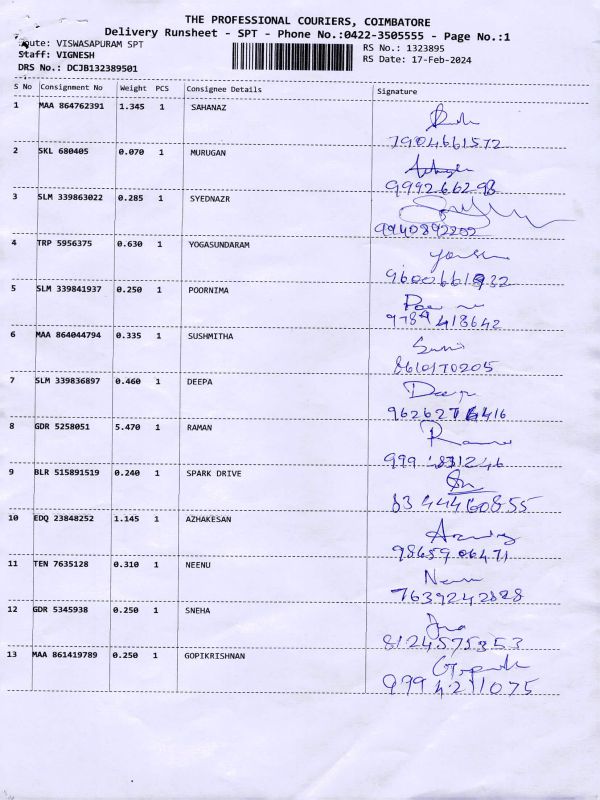 THE PROFESSIONAL COURIERS, COIMBATORE
Delivery Runsheet - SPT - Phone No.:0422-3505555 - Page No.:1
Route: VISWASAPURAM SPT
RS No.: 1323895
Staff: VIGNESH
RS Date: 17-Feb-2024
DRS No.: DCJB132389501
S No Consignment No Weight PCS Consignee Details Signature
1 MAA 864762391 1.345 1 SAHANAZ
7904661572
2 SKL 680405 0.070 1 MURUGAN
9992662 98
3 SLM 339863022 0.285 1 SYEDNAZR
9940892202
4 TRP 5956375 0.630 1 YOGASUNDARAM
5 SLM 339841937 0.250 1 POORNIMA
9789 418642
6 MAA 864044794 0.335 1 SUSHMITHA
8610170205
7 SLM 339836897 0.460 1 DEEPA
Deepa
8 GDR 5258051 5.470 1 RAMAN
9 BLR 515891519 0.240 1 SPARK DRIVE
83 44460855
10 EDQ 23848252 1.145 1 AZHAKESAN
98659 06471
11 TEN 7635128 0.310 1 NEENU
7639242828
12 GDR 5345938 0.250 1 SNEHA
8124575353
13 MAA 861419789 0.250 1 GOPIKRISHNAN
999 4211075